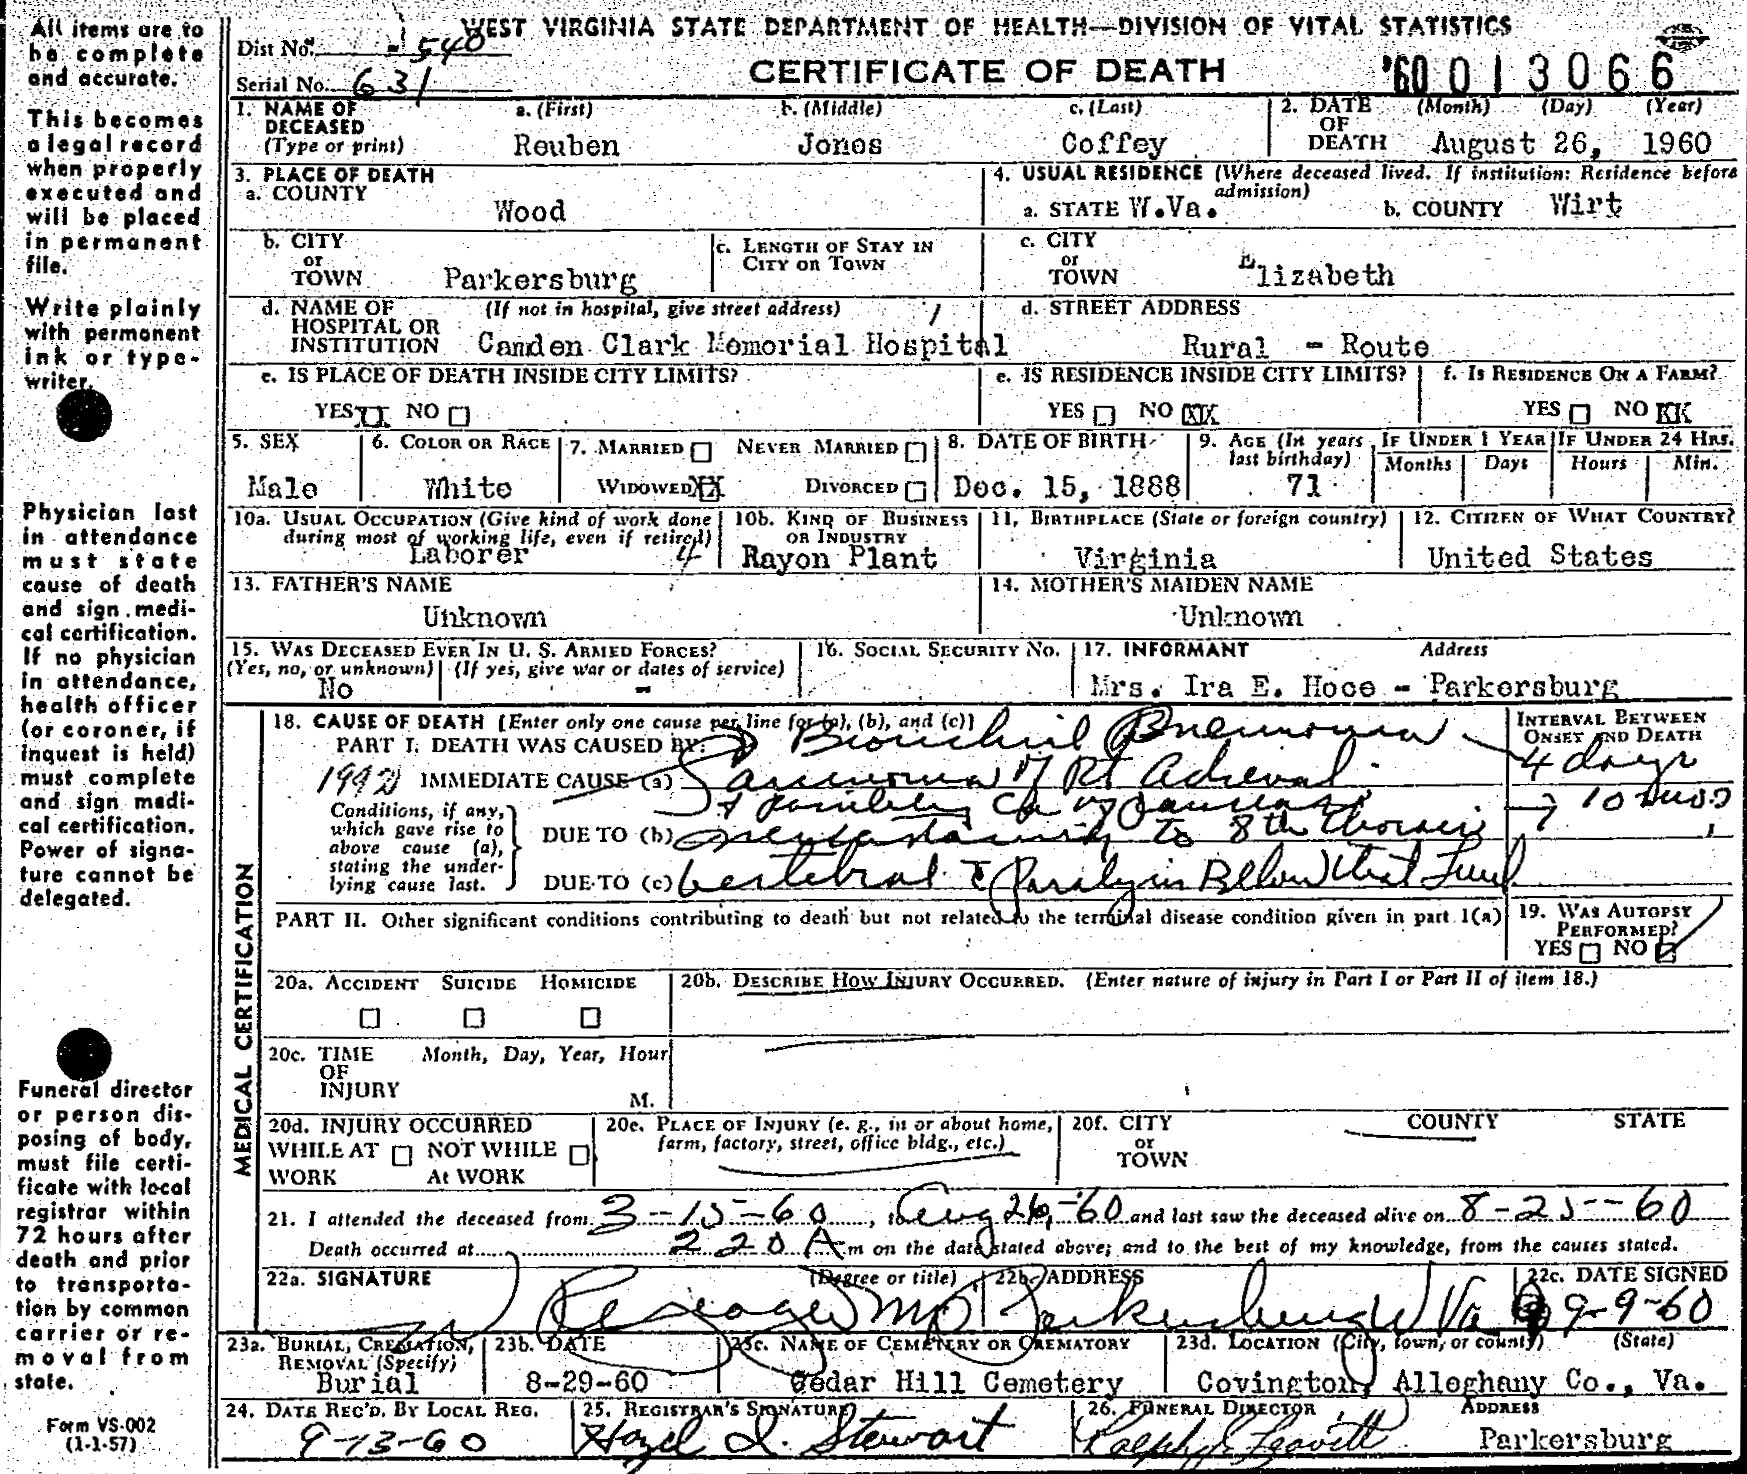 All items are to
be complete
and accurate.
This becomes
a legal record
when properly
executed and
will be placed
in permanent
file.
Write plainly
with permanent
ink or type-
writer.
Physician last
in attendance
must state
cause of death
and sign medi-
cal certification.
If no physician
in attendance,
health officer
(or coroner, if
inquest is held)
must complete
and sign medi-
cal certification.
Power of signa-
ture cannot be
delegated.
Funeral director
or person dis-
posing of body,
must file certi-
ficate with local
registrar within
72 hours after
death and prior
to transporta-
tion by common
carrier or re-
moval from
state.
Form VS-002
(1-1-57)
WEST VIRGINIA STATE DEPARTMENT OF HEALTH—DIVISION OF VITAL STATISTICS
Dist No. 540
Serial No. 631
CERTIFICATE OF DEATH
'60 013066
1. NAME OF DECEASED (Type or print) a. (First) b. (Middle) c. (Last)
Reuben Jones Coffey
2. DATE OF DEATH (Month) (Day) (Year)
August 26, 1960
3. PLACE OF DEATH
a. COUNTY
Wood
4. USUAL RESIDENCE (Where deceased lived. If institution: Residence before admission)
a. STATE W.Va. b. COUNTY Wirt
b. CITY or TOWN Parkersburg
c. LENGTH OF STAY IN CITY OR TOWN
c. CITY or TOWN Elizabeth
d. NAME OF HOSPITAL OR INSTITUTION (If not in hospital, give street address)
Camden Clark Memorial Hospital
d. STREET ADDRESS
Rural - Route
e. IS PLACE OF DEATH INSIDE CITY LIMITS?
YES NO
e. IS RESIDENCE INSIDE CITY LIMITS?
YES NO XX
f. IS RESIDENCE ON A FARM?
YES NO XX
5. SEX
Male
6. COLOR OR RACE
White
7. MARRIED NEVER MARRIED
WIDOWED XX DIVORCED
8. DATE OF BIRTH
Dec. 15, 1888
9. AGE (In years last birthday)
71
IF UNDER 1 YEAR IF UNDER 24 HRS.
Months Days Hours Min.
10a. USUAL OCCUPATION (Give kind of work done during most of working life, even if retired)
Laborer 4
10b. KIND OF BUSINESS OR INDUSTRY
Rayon Plant
11. BIRTHPLACE (State or foreign country)
Virginia
12. CITIZEN OF WHAT COUNTRY?
United States
13. FATHER'S NAME
Unknown
14. MOTHER'S MAIDEN NAME
Unknown
15. WAS DECEASED EVER IN U. S. ARMED FORCES?
(Yes, no, or unknown) (If yes, give war or dates of service)
No -
16. SOCIAL SECURITY NO.
17. INFORMANT Address
Mrs. Ira E. Hoce - Parkersburg
MEDICAL CERTIFICATION
18. CAUSE OF DEATH [Enter only one cause per line for (a), (b), and (c)]
PART I. DEATH WAS CAUSED BY:
Bronchial Pneumonia
INTERVAL BETWEEN ONSET AND DEATH
4 days
IMMEDIATE CAUSE (a) Carcinoma of Rt Adrenal
Conditions, if any, which gave rise to above cause (a), stating the under-lying cause last.
DUE TO (b) to 8th thoracic
DUE TO (c) Vertebral c̄ Paralysis Below that Level
PART II. Other significant conditions contributing to death but not related to the terminal disease condition given in part 1(a)
19. WAS AUTOPSY PERFORMED?
YES NO
20a. ACCIDENT SUICIDE HOMICIDE
20b. DESCRIBE HOW INJURY OCCURRED. (Enter nature of injury in Part I or Part II of item 18.)
20c. TIME OF INJURY Month, Day, Year, Hour
M.
20d. INJURY OCCURRED
WHILE AT WORK NOT WHILE At WORK
20e. PLACE OF INJURY (e. g., in or about home, farm, factory, street, office bldg., etc.)
20f. CITY or TOWN COUNTY STATE
21. I attended the deceased from 3-15-60, to Aug 26, -60 and last saw the deceased alive on 8-25-60
Death occurred at 2 20 A m on the date stated above; and to the best of my knowledge, from the causes stated.
22a. SIGNATURE (Degree or title)
MD
22b. ADDRESS
Parkersburg W Va
22c. DATE SIGNED
9-9-60
23a. BURIAL, CREMATION, REMOVAL (Specify)
Burial
23b. DATE
8-29-60
23c. NAME OF CEMETERY OR CREMATORY
Cedar Hill Cemetery
23d. LOCATION (City, town, or county) (State)
Covington, Alleghany Co., Va.
24. DATE REC'D. BY LOCAL REG.
9-13-60
25. REGISTRAR'S SIGNATURE
Hazel D. Stewart
26. FUNERAL DIRECTOR ADDRESS
Ralph Leavitt Parkersburg